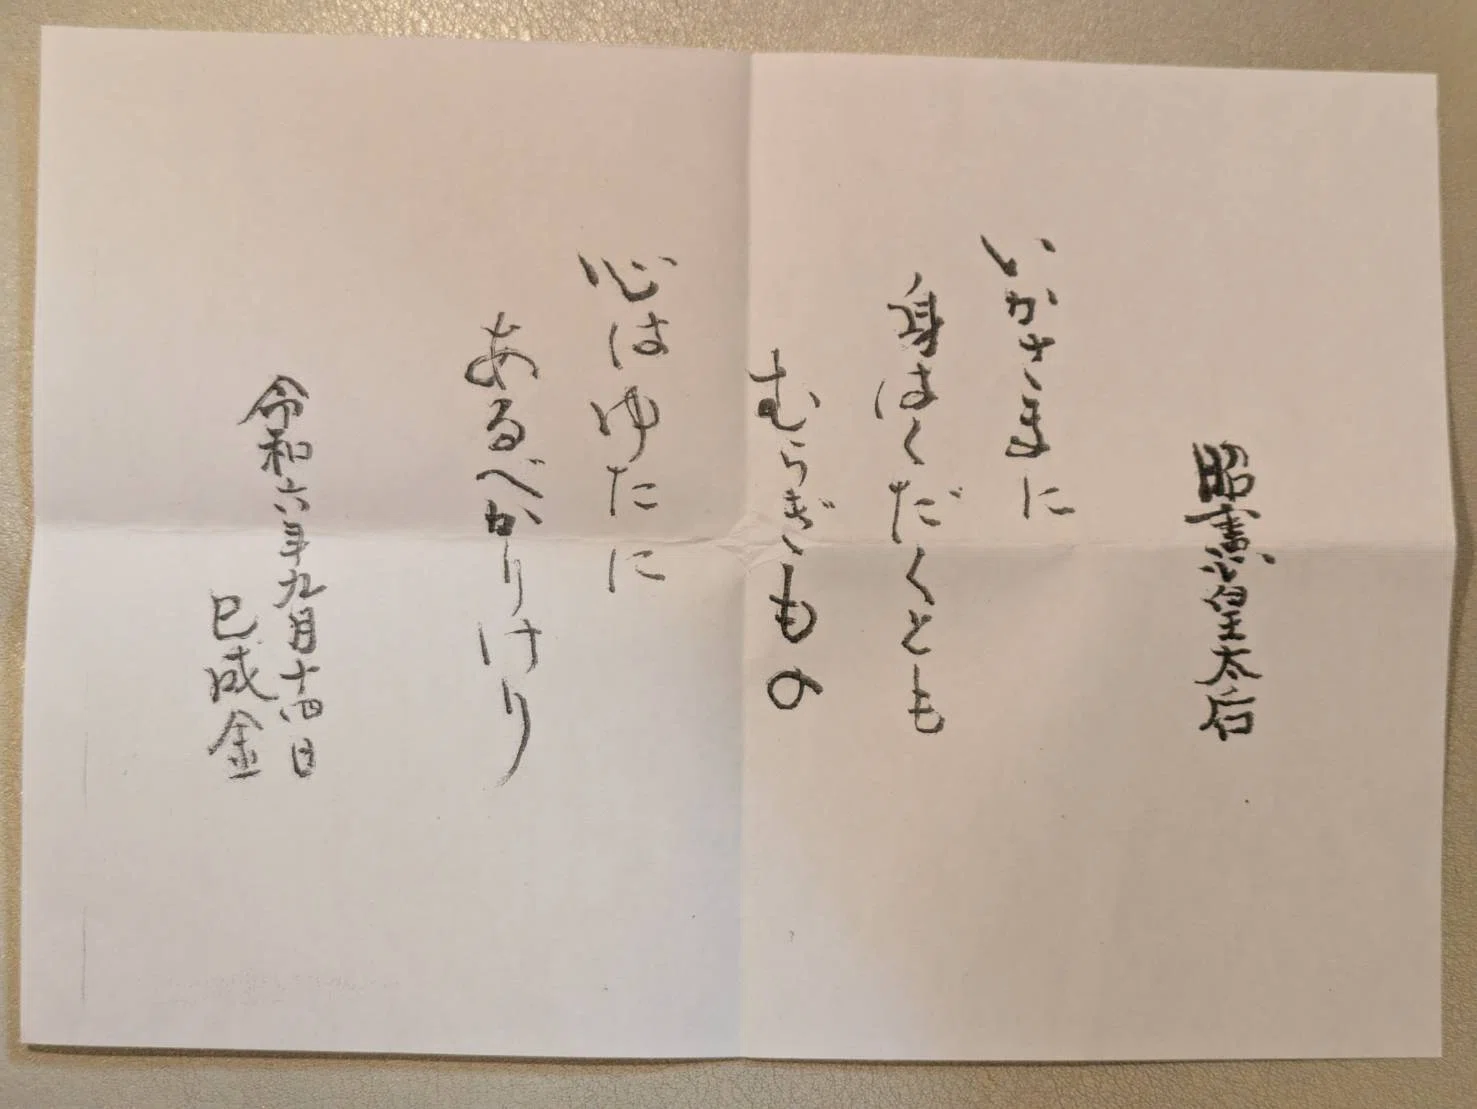 昭憲皇太后
いかさまに
身はくだくとも
むらぎもの
心はゆたに
あるべかりけり
令和六年九月十四日
巳成金